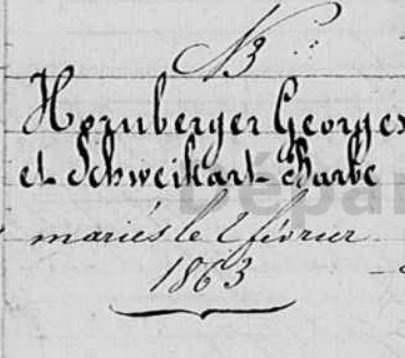 N 3
Hornberger Georges
et Schweikart Barbe
mariés le 2 février
1863
Dépar